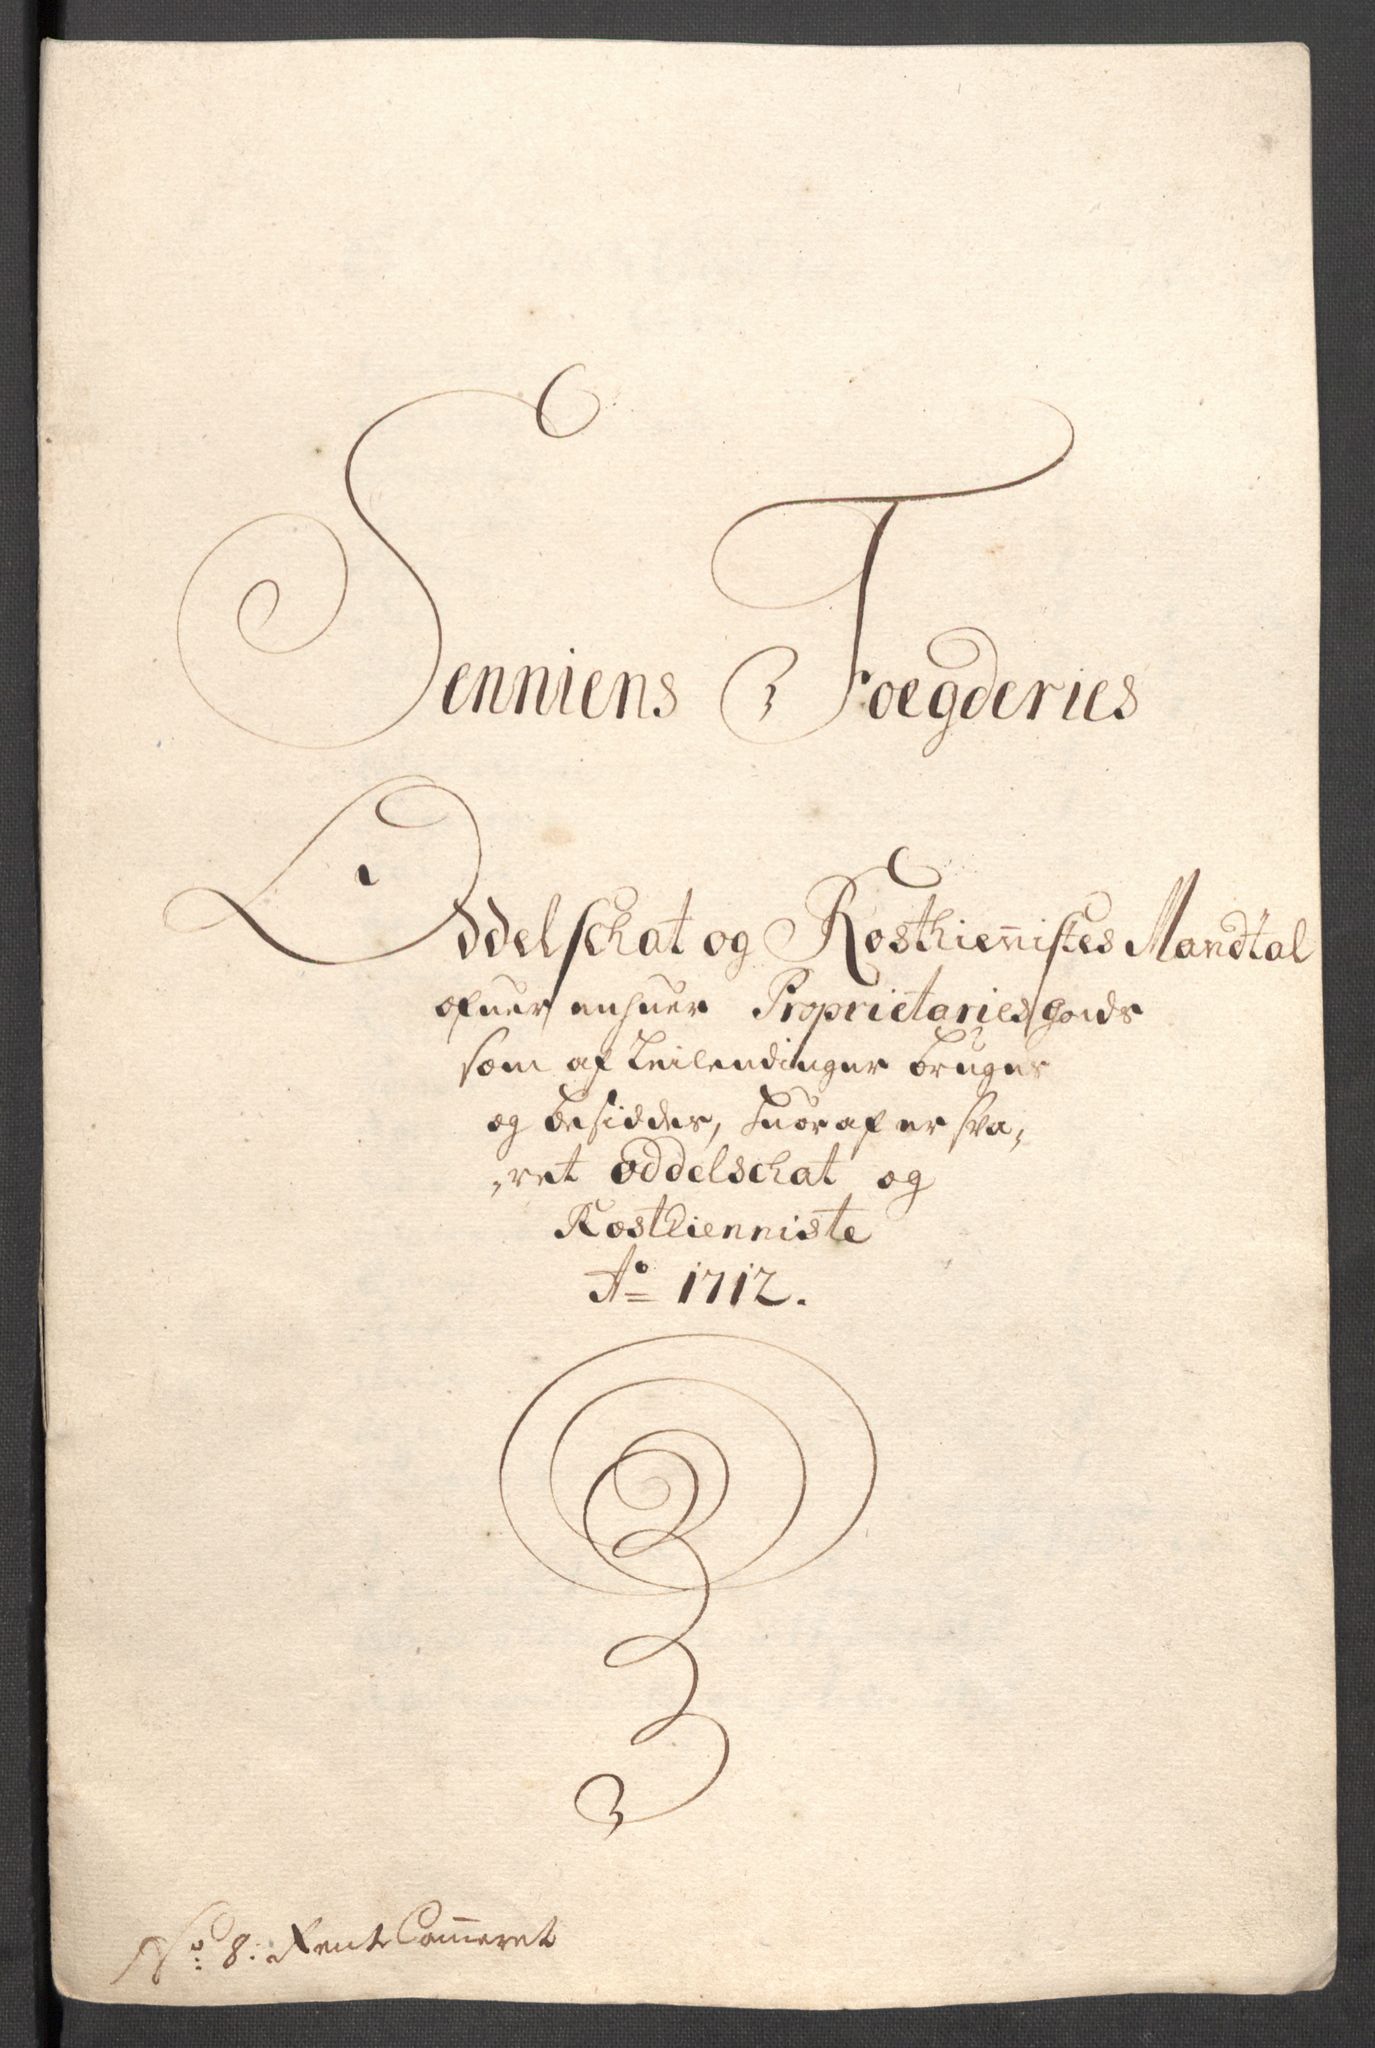 Senniens Foegderies
Oddelschat og Rosthienistes Mandtal
ofuer enhuer Proprietaries goeds
som af Leilendinger bruges
og besiddes, huoraf er sva,
,ret oddelschat og
Rostienniste
Ao 1712.
No: 8. Rente Cammeret